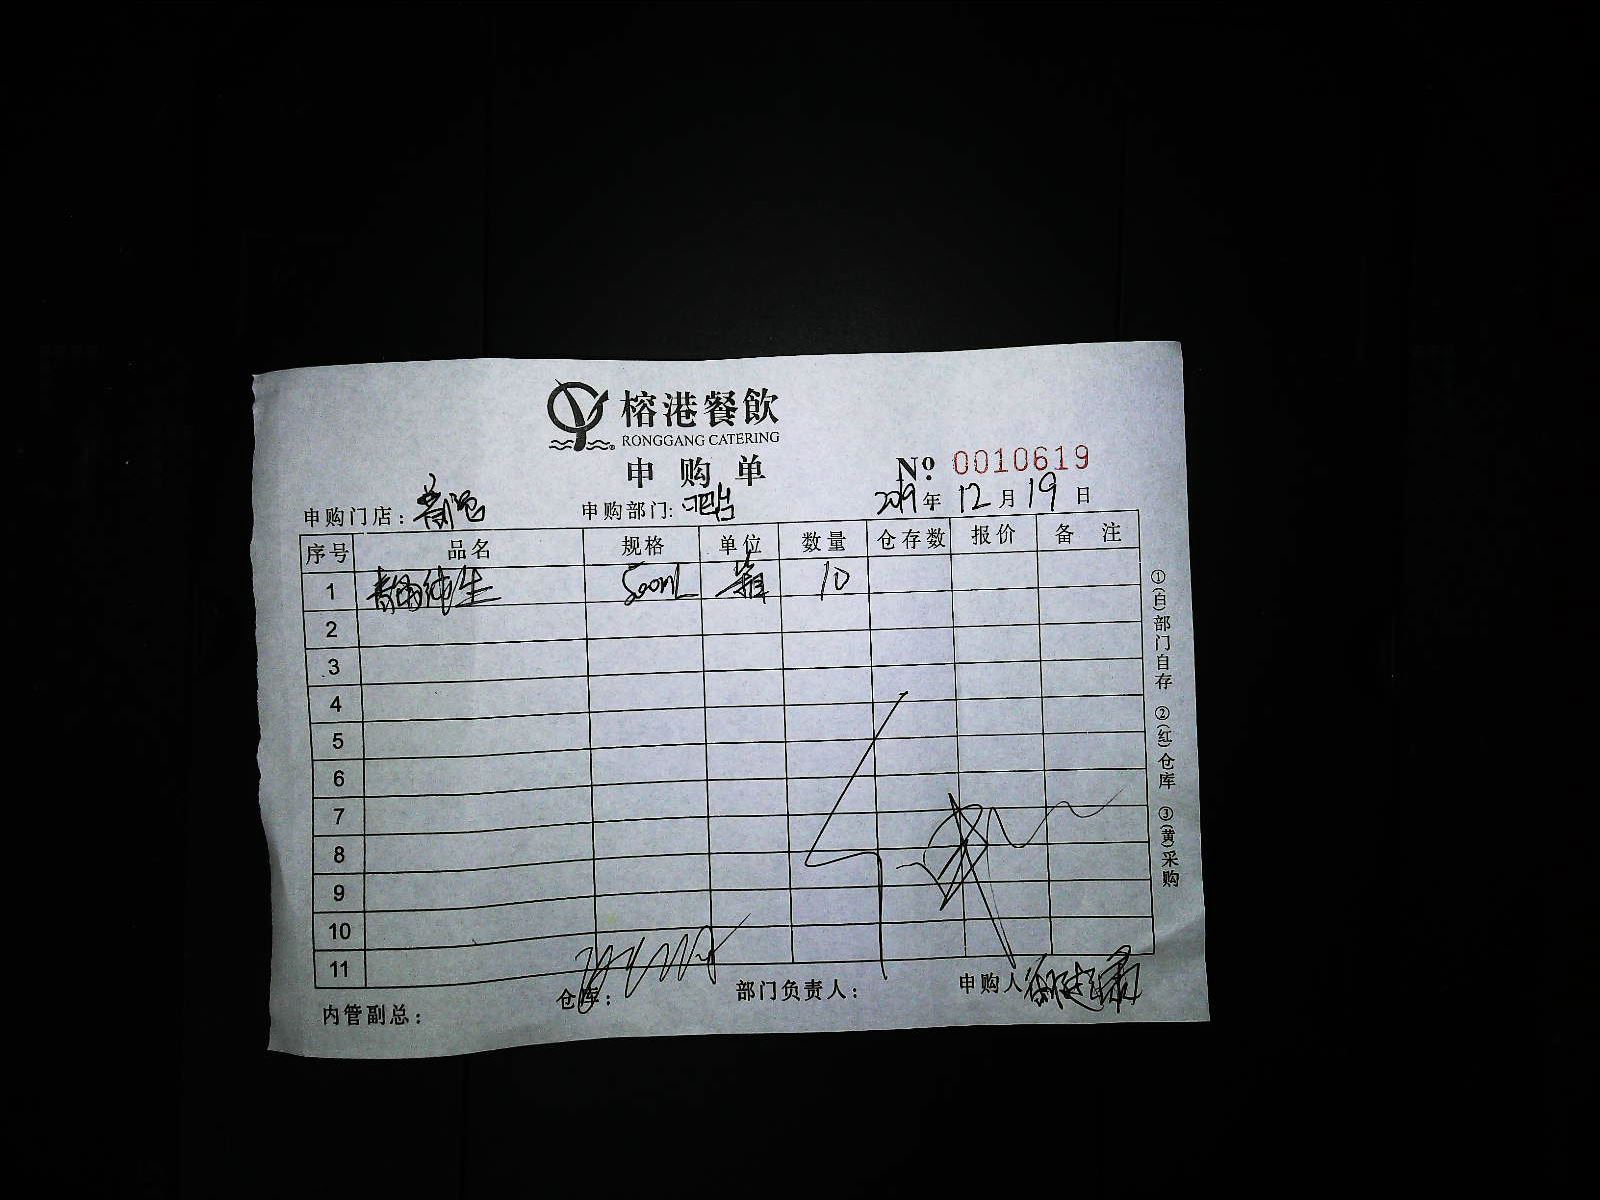 榕港餐飲
RONGGANG CATERING
申购单
№ 0010619
申购门店: 申购部门: 吧台 2019年12月19日
序号 品名 规格 单位 数量 仓存数 报价 备注
1 青岛纯生 500mL 箱 10
2
3
4
5
6
7
8
9
10
11
内管副总: 仓库: 部门负责人: 申购人
①(白)部门自存 ②(红)仓库 ③(黄)采购